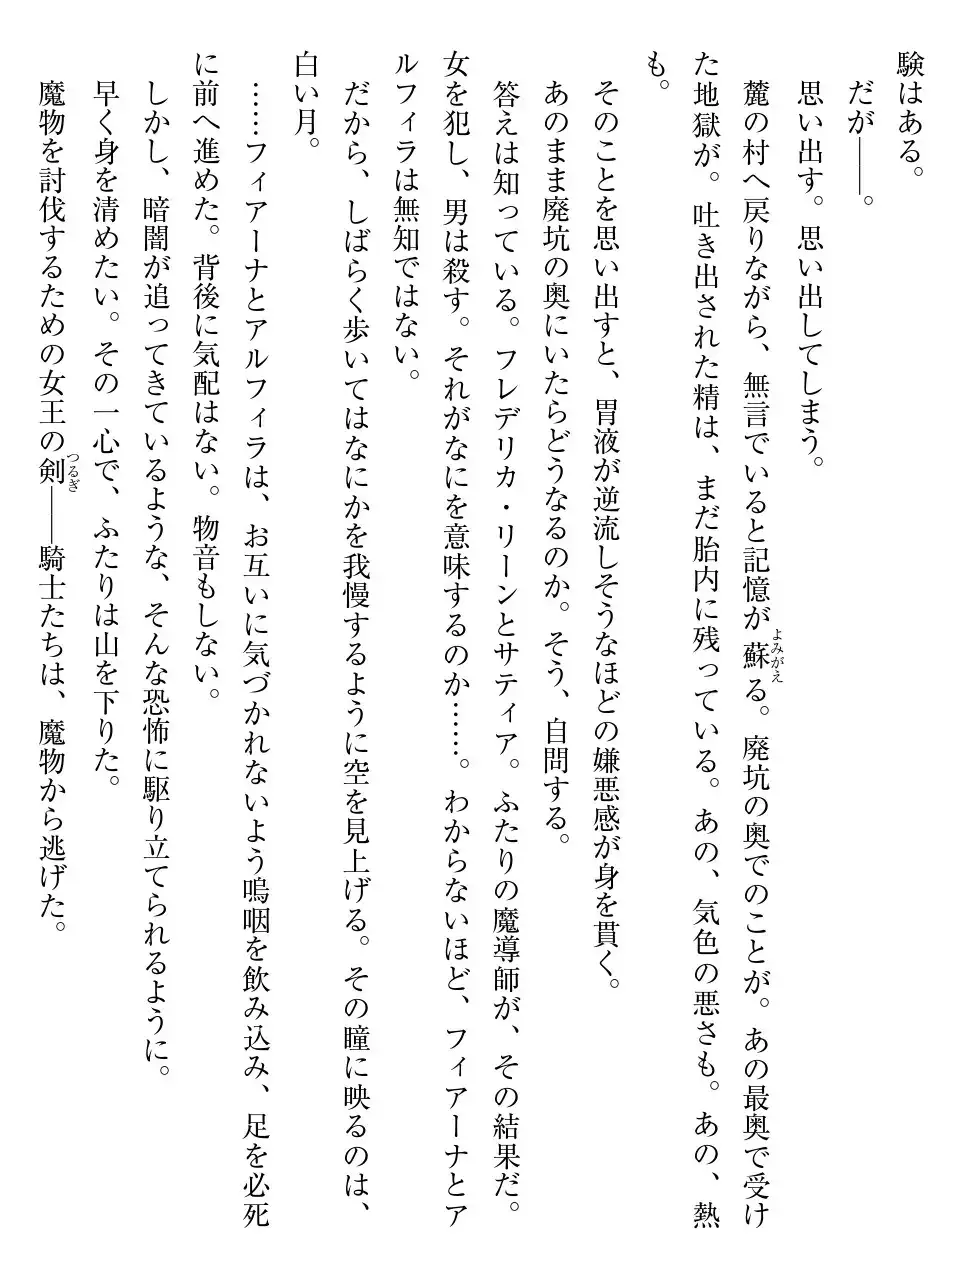 験はある。
だが――。
思い出す。思い出してしまう。
麓の村へ戻りながら、無言でいると記憶が蘇る。廃坑の奥でのことが。あの最奥で受け
た地獄が。吐き出された精は、まだ胎内に残っている。あの、気色の悪さも。あの、熱
も。
そのことを思い出すと、胃液が逆流しそうなほどの嫌悪感が身を貫く。
あのまま廃坑の奥にいたらどうなるのか。そう、自問する。
答えは知っている。フレデリカ・リーンとサティア。ふたりの魔導師が、その結果だ。
女を犯し、男は殺す。それがなにを意味するのか……。わからないほど、フィアーナとア
ルフィラは無知ではない。
だから、しばらく歩いてはなにかを我慢するように空を見上げる。その瞳に映るのは、
白い月。
……フィアーナとアルフィラは、お互いに気づかれないよう嗚咽を飲み込み、足を必死
に前へ進めた。背後に気配はない。物音もしない。
しかし、暗闇が追ってきているような、そんな恐怖に駆り立てられるように。
早く身を清めたい。その一心で、ふたりは山を下りた。
魔物を討伐するための女王の剣――騎士たちは、魔物から逃げた。
よみがえ
つるぎ